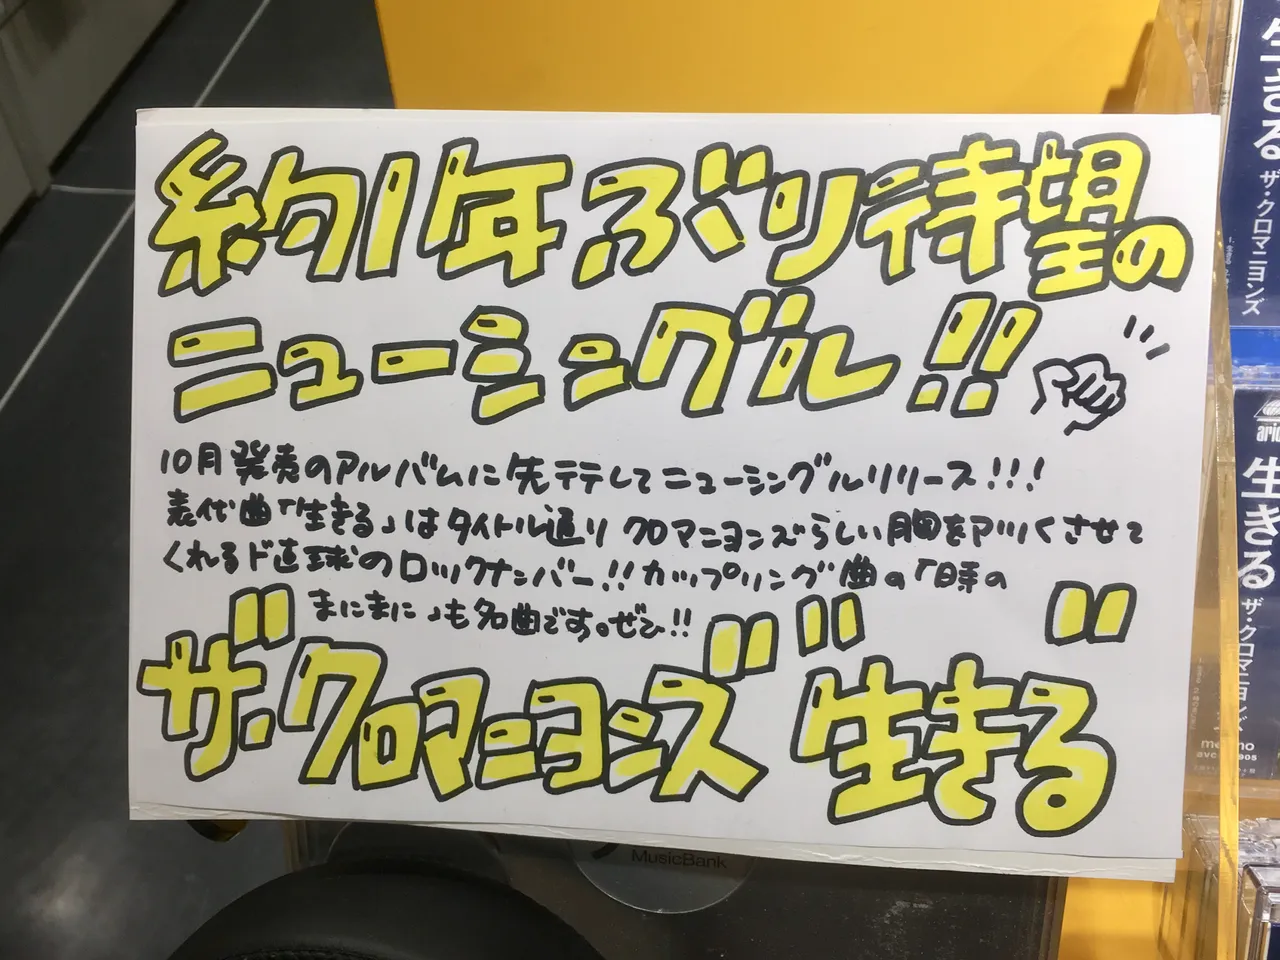 約1年ぶり待望の
ニューシングル!!
10月発売のアルバムに先テテしてニューシングルリリース!!!
表代曲「生きる」はタイトル通りクロマニヨンズらしい胸をアツくさせて
くれるド直球のロックナンバー!!カップリング曲の「時の
まにまに」も名曲です。ぜひ!!
ザ・クロマニヨンズ "生きる"
生きる ザ・クロマニヨンズ
生きる ザ・クロマニヨンズ
MusicBank